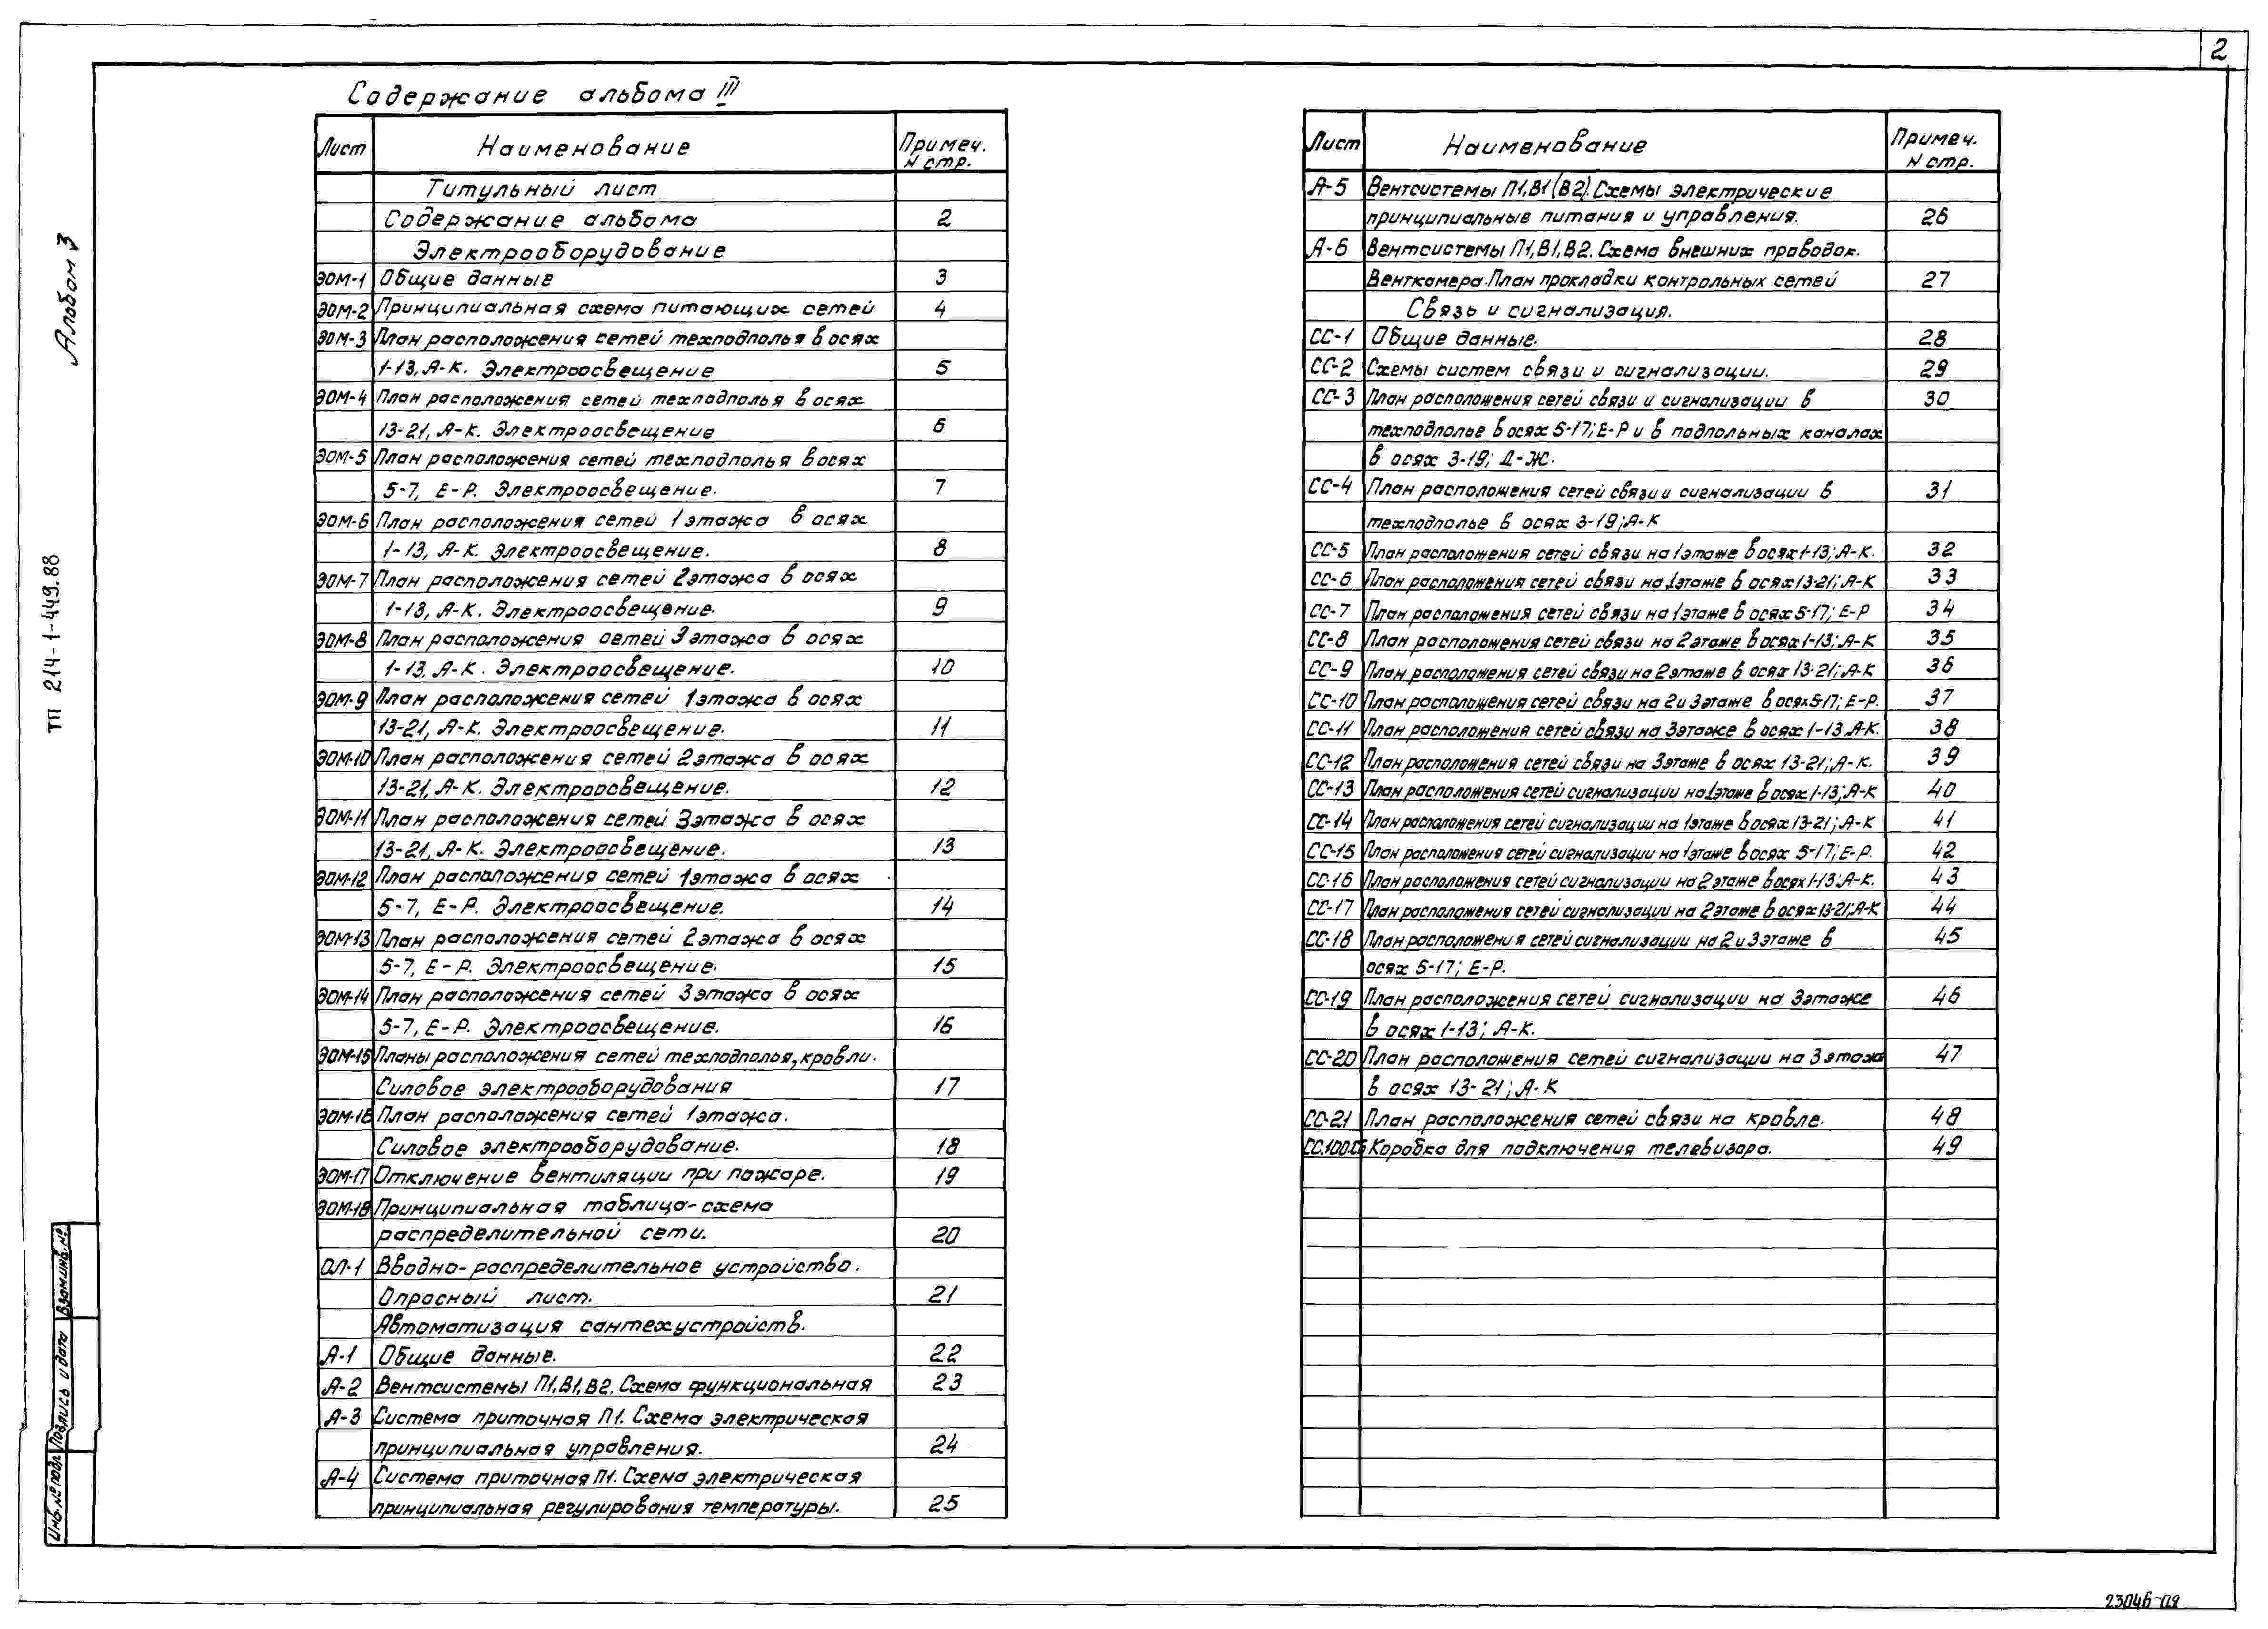 2
Содержание альбома III
Лист Наименование Примеч. N стр.
Титульный лист
Содержание альбома 2
Электрооборудование
ЭОМ-1 Общие данные 3
ЭОМ-2 Принципиальная схема питающих сетей 4
ЭОМ-3 План расположения сетей техподполья в осях
1-13, А-К. Электроосвещение 5
ЭОМ-4 План расположения сетей техподполья в осях
13-21, А-К. Электроосвещение 6
ЭОМ-5 План расположения сетей техподполья в осях
5-7, Е-Р. Электроосвещение. 7
ЭОМ-6 План расположения сетей 1 этажа в осях
1-13, А-К. Электроосвещение. 8
ЭОМ-7 План расположения сетей 2 этажа в осях
1-13, А-К. Электроосвещение. 9
ЭОМ-8 План расположения сетей 3 этажа в осях
1-13, А-К. Электроосвещение. 10
ЭОМ-9 План расположения сетей 1 этажа в осях
13-21, А-К. Электроосвещение. 11
ЭОМ-10 План расположения сетей 2 этажа в осях
13-21, А-К. Электроосвещение. 12
ЭОМ-11 План расположения сетей 3 этажа в осях
13-21, А-К. Электроосвещение. 13
ЭОМ-12 План расположения сетей 1 этажа в осях
5-7, Е-Р. Электроосвещение. 14
ЭОМ-13 План расположения сетей 2 этажа в осях
5-7, Е-Р. Электроосвещение. 15
ЭОМ-14 План расположения сетей 3 этажа в осях
5-7, Е-Р. Электроосвещение. 16
ЭОМ-15 Планы расположения сетей техподполья, кровли.
Силовое электрооборудования 17
ЭОМ-16 План расположения сетей 1 этажа.
Силовое электрооборудование. 18
ЭОМ-17 Отключение вентиляции при пожаре. 19
ЭОМ-18 Принципиальная таблица-схема
распределительной сети. 20
ОЛ-1 Вводно-распределительное устройство.
Опросный лист. 21
Автоматизация сантехустройств.
А-1 Общие данные. 22
А-2 Вентсистемы П1, В1, В2. Схема функциональная 23
А-3 Система приточная П1. Схема электрическая
принципиальная управления. 24
А-4 Система приточная П1. Схема электрическая
принципиальная регулирования температуры. 25
Лист Наименование Примеч. N стр.
А-5 Вентсистемы П1, В1 (В2). Схемы электрические
принципиальные питания и управления. 26
А-6 Вентсистемы П1, В1, В2. Схема внешних проводок.
Венткамера. План прокладки контрольных сетей 27
Связь и сигнализация.
СС-1 Общие данные. 28
СС-2 Схемы систем связи и сигнализации. 29
СС-3 План расположения сетей связи и сигнализации в 30
техподполье в осях 5-17; Е-Р и в подпольных каналах
в осях 3-19; Д-Ж.
СС-4 План расположения сетей связи и сигнализации в 31
техподполье в осях 3-19; А-К
СС-5 План расположения сетей связи на 1 этаже в осях 1-13; А-К. 32
СС-6 План расположения сетей связи на 1 этаже в осях 13-21; А-К 33
СС-7 План расположения сетей связи на 1 этаже в осях 5-17; Е-Р 34
СС-8 План расположения сетей связи на 2 этаже в осях 1-13; А-К 35
СС-9 План расположения сетей связи на 2 этаже в осях 13-21; А-К 36
СС-10 План расположения сетей связи на 2 и 3 этаже в осях 5-17; Е-Р. 37
СС-11 План расположения сетей связи на 3 этаже в осях 1-13, А-К. 38
СС-12 План расположения сетей связи на 3 этаже в осях 13-21; А-К. 39
СС-13 План расположения сетей сигнализации на 1 этаже в осях 1-13; А-К 40
СС-14 План расположения сетей сигнализации на 1 этаже в осях 13-21; А-К 41
СС-15 План расположения сетей сигнализации на 1 этаже в осях 5-17; Е-Р. 42
СС-16 План расположения сетей сигнализации на 2 этаже в осях 1-13; А-К. 43
СС-17 План расположения сетей сигнализации на 2 этаже в осях 13-21; А-К 44
СС-18 План расположения сетей сигнализации на 2 и 3 этаже в 45
осях 5-17; Е-Р.
СС-19 План расположения сетей сигнализации на 3 этаже 46
в осях 1-13; А-К.
СС-20 План расположения сетей сигнализации на 3 этаже 47
в осях 13-21; А-К
СС-21 План расположения сетей связи на кровле. 48
СС.100.СБ Коробка для подключения телевизора. 49
Альбом 3
ТП 214-1-449.88
Взам.инв.№
Подпись и дата
Инв.№ подл.
23046-02